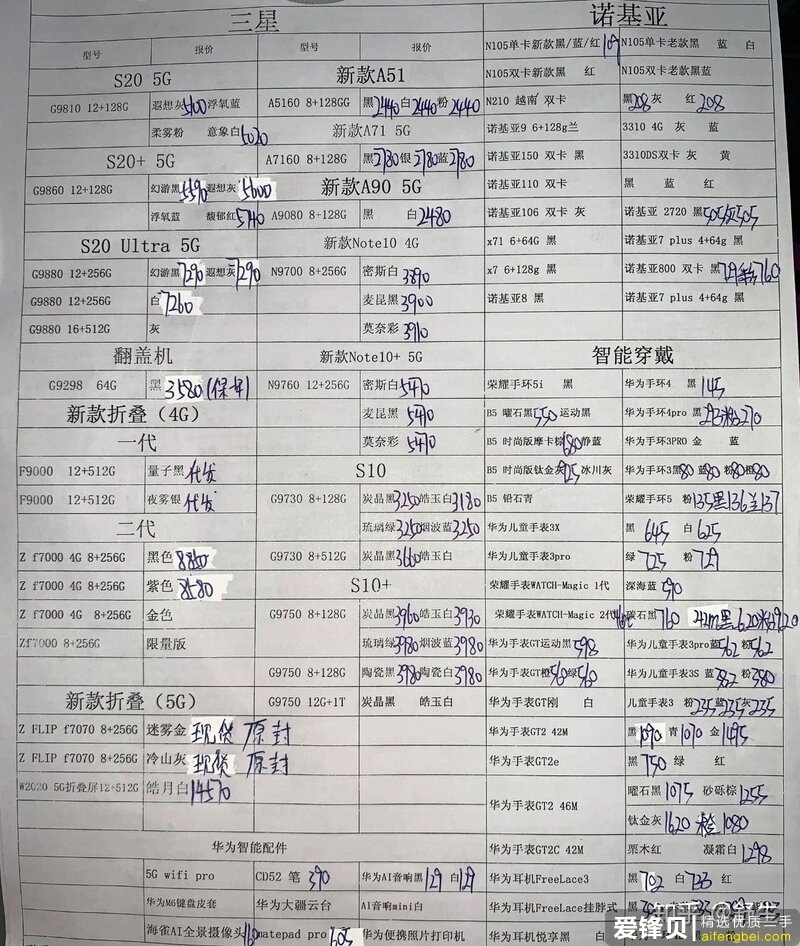 三星
型号 报价 型号 报价
S20 5G
G9810 12+128G 遐想灰5100 浮氧蓝
柔雾粉 意象白5020
S20+ 5G
G9860 12+128G 幻游黑5590 遐想灰5600
浮氧蓝 馥郁红5740
S20 Ultra 5G
G9880 12+256G 幻游黑7290 遐想灰7290
G9880 12+256G 白7260
G9880 16+512G 灰
翻盖机
G9298 64G 黑3580(保卡)
新款折叠（4G）
一代
F9000 12+512G 量子黑 代发
F9000 12+512G 夜雾银 代发
二代
Z f7000 4G 8+256G 黑色 8850
Z f7000 4G 8+256G 紫色 8580
Z f7000 4G 8+256G 金色
Zf7000 8+256G 限量版
新款折叠（5G）
Z FLIP f7070 8+256G 迷雾金 现货 原封
Z FLIP f7070 8+256G 冷山灰 现货 原封
W2020 5G折叠屏12+512G 皓月白14570
新款A51
A5160 8+128GG 黑2440白2440粉2440
新款A71 5G
A7160 8+128G 黑2780银2780蓝2780
新款A90 5G
A9080 8+128G 黑 白2480
新款Note10 4G
N9700 8+256G 密斯白 3890
麦昆黑3900
莫奈彩 3910
新款Note10+ 5G
N9760 12+256G 密斯白5470
麦昆黑 5470
莫奈彩 5470
S10
G9730 8+128G 炭晶黑3250皓玉白3180
琉璃绿3250烟波蓝3250
G9730 8+512G 炭晶黑3660皓玉白
S10+
G9750 8+128G 炭晶黑3960皓玉白3930
琉璃绿3980烟波蓝3980
G9750 8+128G 陶瓷黑3980陶瓷白3980
G9750 12G+1T 炭晶黑 皓玉白
华为智能配件
5G wifi pro CD52 笔 390 华为AI音响黑129 白129
华为M6键盘皮套 华为大疆云台 AI音响mini白
海雀AI全景摄像头160 matepad pro 605 华为便携照片打印机
诺基亚
N105单卡新款黑/蓝/红109 N105单卡老款黑 蓝 白
N105双卡新款黑 红 N105双卡老款黑蓝
N210 越南 双卡 黑208灰 红208
诺基亚9 6+128g兰 3310 4G 灰 蓝
诺基亚150 双卡 黑 3310DS双卡 灰 黄
诺基亚110 双卡 黑 蓝 红
诺基亚106 双卡 灰 诺基亚 2720 黑505灰505
x71 6+64G 黑 诺基亚7 plus 4+64g 黑
x7 6+128g 黑 诺基亚800 双卡 黑729 760
诺基亚8 黑 诺基亚7 plus 4+64g 黑
智能穿戴
荣耀手环5i 黑 华为手环4 黑 145
B5 曜石黑550运动黑 华为手环4pro 黑293粉270
B5 时尚版摩卡棕680静蓝 华为手环3PRO 金 蓝
B5 时尚版钛金灰925冰川灰 华为手环3黑80蓝80粉80橙80
B5 铅石青 荣耀手环5 粉135黑136兰137
华为儿童手表3X 黑 645 白 625
华为儿童手表3pro 绿 725 粉 729
荣耀手表WATCH-Magic 1代 深海蓝 590
荣耀手表WATCH-Magic 2代 碳石黑760 42m黑620粉920
华为手表GT运动黑598 华为儿童手表3pro蓝562粉562
华为手表GT橙560绿560 华为儿童手表3S 蓝382粉380
华为手表GT刚 白 儿童手表3 粉235蓝235灰235
华为手表GT2 42M 黑1090 青1070 金1495
华为手表GT2e 黑750 绿 红
华为手表GT2 46M 曜石黑1075 砂砾棕1255
钛金灰1620 橙1080
华为手表GT2C 42M 栗木红 凝霜白1298
华为耳机FreeLace3 黑702 白733 红
华为耳机FreeLace挂脖式 黑
华为耳机悦享黑 白
爱锋贝 精选优质二手
aifengbei.com